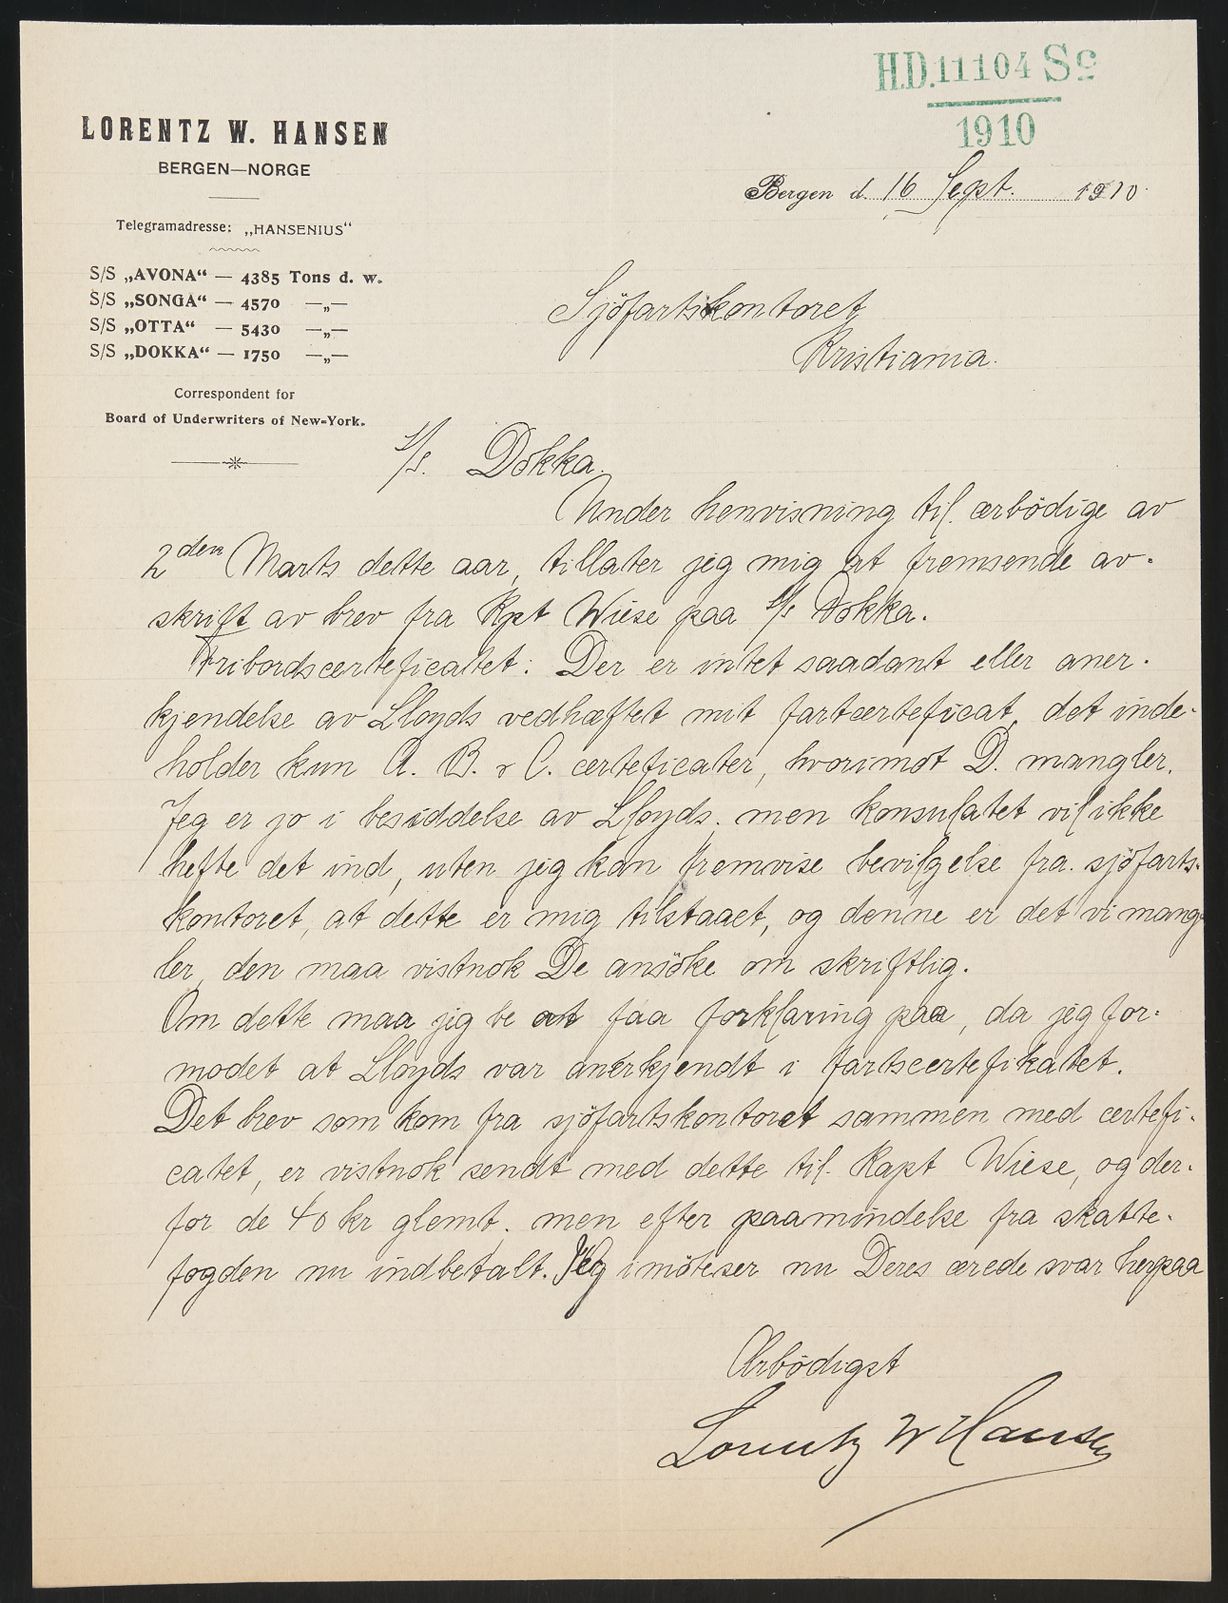 H.D. 11104 Sc
1910
LORENTZ W. HANSEN
BERGEN—NORGE
Telegramadresse: „HANSENIUS“
S/S „AVONA“ — 4385 Tons d. w.
S/S „SONGA“ — 4570 —„—
S/S „OTTA“ — 5430 —„—
S/S „DOKKA“ — 1750 —„—
Correspondent for
Board of Underwriters of New-York.
Bergen d. 16 Sept. 1910
Sjöfartskontoret
Kristiania.
S/S. Dokka.
Under henvisning til ærbödige av
2den Marts dette aar, tillater jeg mig at fremsende av-
skrift av brev fra Kpt Wiese paa S/S Dokka.
Fribordscerteficatet: Der er intet saadant eller aner-
kjendelse av Lloyds vedhæftet mit fartcerteficat, det inde-
holder kun A. B. & C. certeficater, hvorimot D. mangler.
Jeg er jo i besiddelse av Lloyds, men konsulatet vil ikke
hefte det ind, uten jeg kan fremvise bevilgelse fra sjöfarts-
kontoret, at dette er mig tilstaaet, og denne er det vi mang-
ler, den maa vistnok De ansöke om skriftlig.
Om dette maa jeg be at faa forklaring paa, da jeg for-
modet at Lloyds var anerkjendt i fartscertefikatet.
Det brev som kom fra sjöfartskontoret sammen med certefi-
catet, er vistnok sendt med dette til Kapt Wiese, og der-
for de 40 kr glemt, men efter paamindelse fra skatte-
fogden nu indbetalt. Jeg imöteser nu Deres ærede svar herpaa
Ærbödigst
Lorentz W Hansen